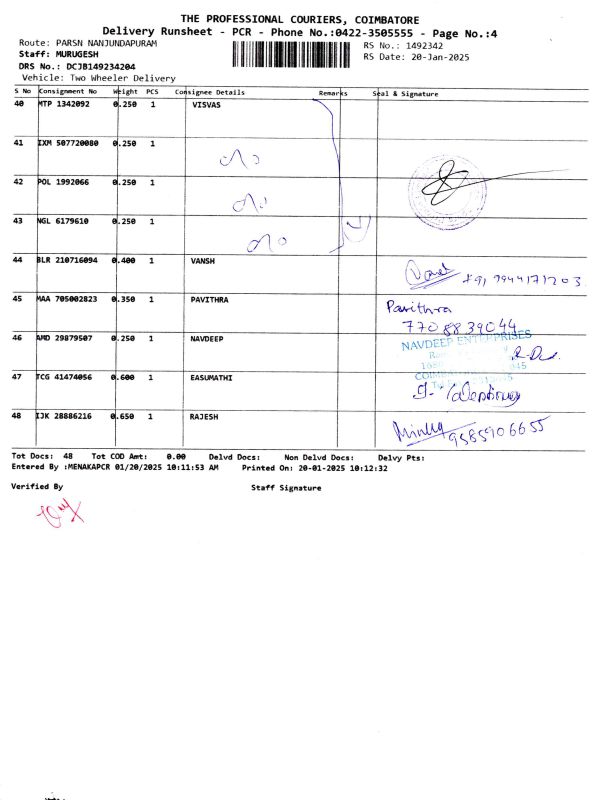 THE PROFESSIONAL COURIERS, COIMBATORE
Delivery Runsheet - PCR - Phone No.:0422-3505555 - Page No.:4
Route: PARSN NANJUNDAPURAM
RS No.: 1492342
Staff: MURUGESH
RS Date: 20-Jan-2025
DRS No.: DCJB149234204
Vehicle: Two Wheeler Delivery
S No Consignment No Weight PCS Consignee Details Remarks Seal & Signature
40 MTP 1342092 0.250 1 VISVAS
41 IXM 507720080 0.250 1
42 POL 1992066 0.250 1
43 NGL 6179610 0.250 1
44 BLR 210716094 0.400 1 VANSH
+91 7944171203
45 MAA 705002823 0.350 1 PAVITHRA Pavithra
7708839044
46 AMD 29879507 0.250 1 NAVDEEP NAVDEEP ENTERPRISES
47 TCG 41474056 0.600 1 EASUMATHI
48 IJK 28886216 0.650 1 RAJESH 9585906655
Tot Docs: 48 Tot COD Amt: 0.00 Delvd Docs: Non Delvd Docs: Delvy Pts:
Entered By :MENAKAPCR 01/20/2025 10:11:53 AM Printed On: 20-01-2025 10:12:32
Verified By Staff Signature